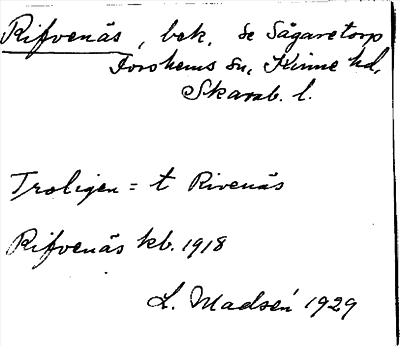 Rifvenäs, bek. se Sågaretorp
Forshems sn, Kinne hd,
Skarab. l.
Troligen = t Rivenäs
Rifvenäs kb. 1918
L. Madsén 1929